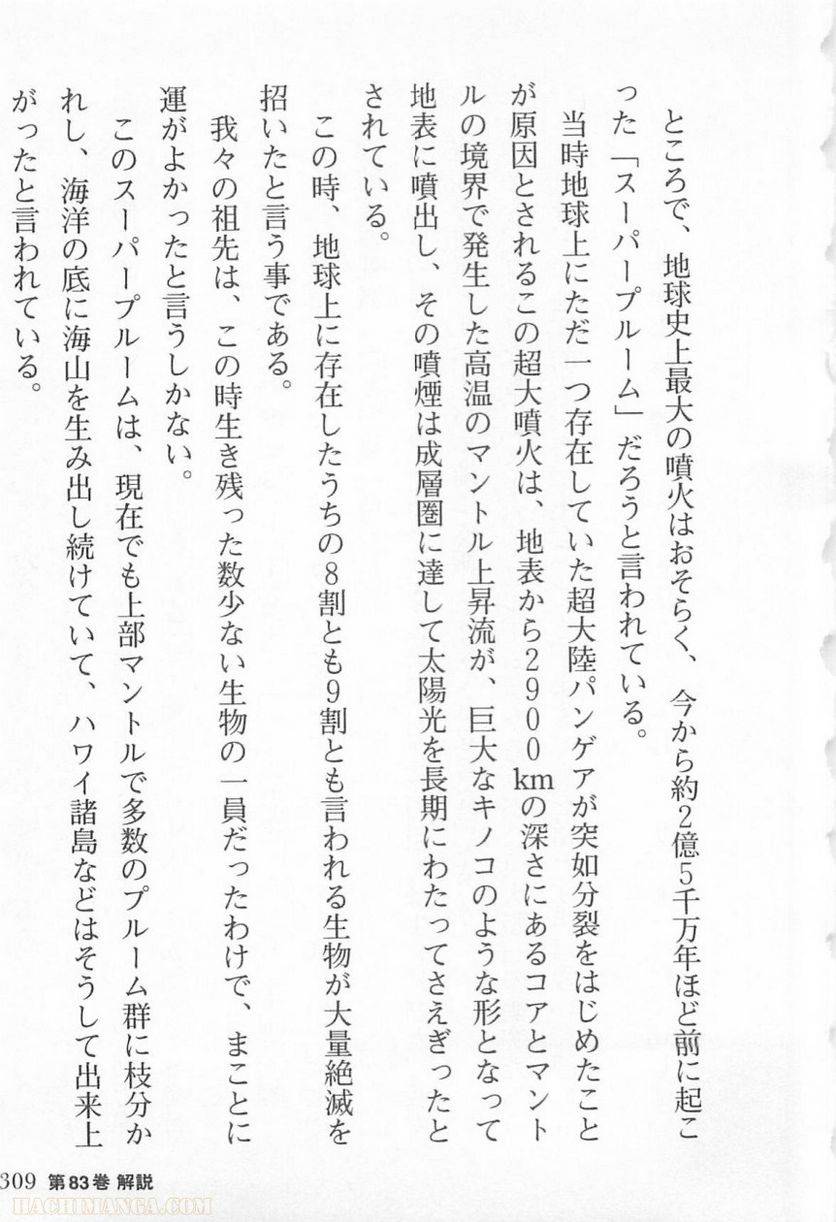 ところで、地球史上最大の噴火はおそらく、今から約2億5千万年ほど前に起こ
った「スーパープルーム」だろうと言われている。
当時地球上にただ一つ存在していた超大陸パンゲアが突如分裂をはじめたこと
が原因とされるこの超大噴火は、地表から2900kmの深さにあるコアとマント
ルの境界で発生した高温のマントル上昇流が、巨大なキノコのような形となって
地表に噴出し、その噴煙は成層圏に達して太陽光を長期にわたってさえぎったと
されている。
この時、地球上に存在したうちの8割とも9割とも言われる生物が大量絶滅を
招いたと言う事である。
我々の祖先は、この時生き残った数少ない生物の一員だったわけで、まことに
運がよかったと言うしかない。
このスーパープルームは、現在でも上部マントルで多数のプルーム群に枝分か
れし、海洋の底に海山を生み出し続けていて、ハワイ諸島などはそうして出来上
がったと言われている。
309 第83巻 解説
HACHIMANGA.COM